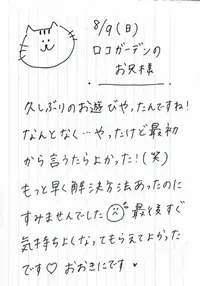 8/9(日)
ロコガーデンの
お兄様
久しぶりのお遊びやったんですね!
なんとなく…やったけど最初
から言うたらよかった!(笑)
もっと早く解決方法あったのに
すみませんでした 最後すぐ
気持ちよくなってもらえてよかった
です♡ おおきにです♥